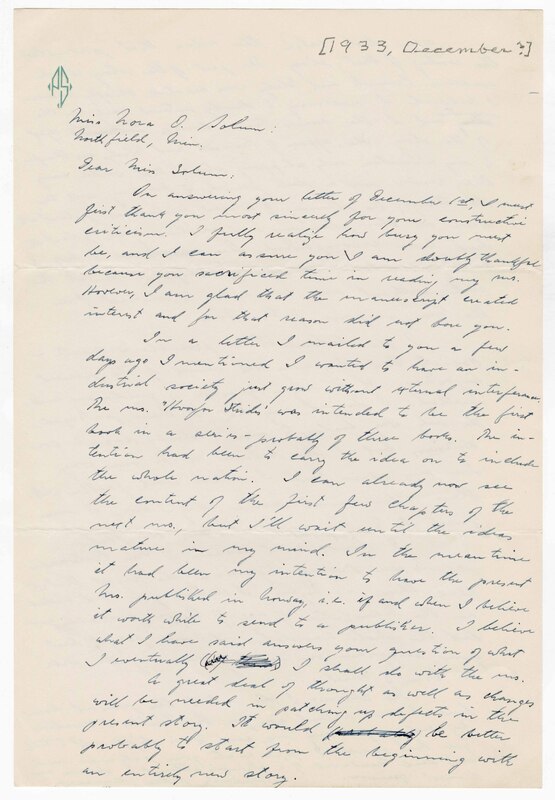 [1933, December?]
PS
Miss Nora O. Solum:
Northfield, Minn.
Dear Miss Solum:
On answering your letter of December 1st, I must
first thank you most sincerely for your constructive
criticism. I fully realize how busy you must
be, and I can assure you I am doubly thankful
because you sacrificed time in reading my ms.
However, I am glad that the manuscript created
interest and for that reason did not bore you.
In a letter I mailed to you a few
days ago I mentioned I wanted to have an in-
dustrial society just grow without external interference.
The ms. was intended to be the first
book in a series - probably of three books. The in-
tention had been to carry the idea on to include
the whole nation. I can already now see
the content of the first few chapters of the
next ms., but I'll wait until the ideas
mature in my mind. In the meantime
it had been my intention to have the present
ms. published in Norway, i.e. if and when I believe
it worth while to send to a publisher. I believe
what I have said answers your question of what
I eventually I shall do with the ms.
A great deal of thought as well as changes
will be needed in patching up defects in the
present story. It would be better
probably to start from the beginning with
an entirely new story.